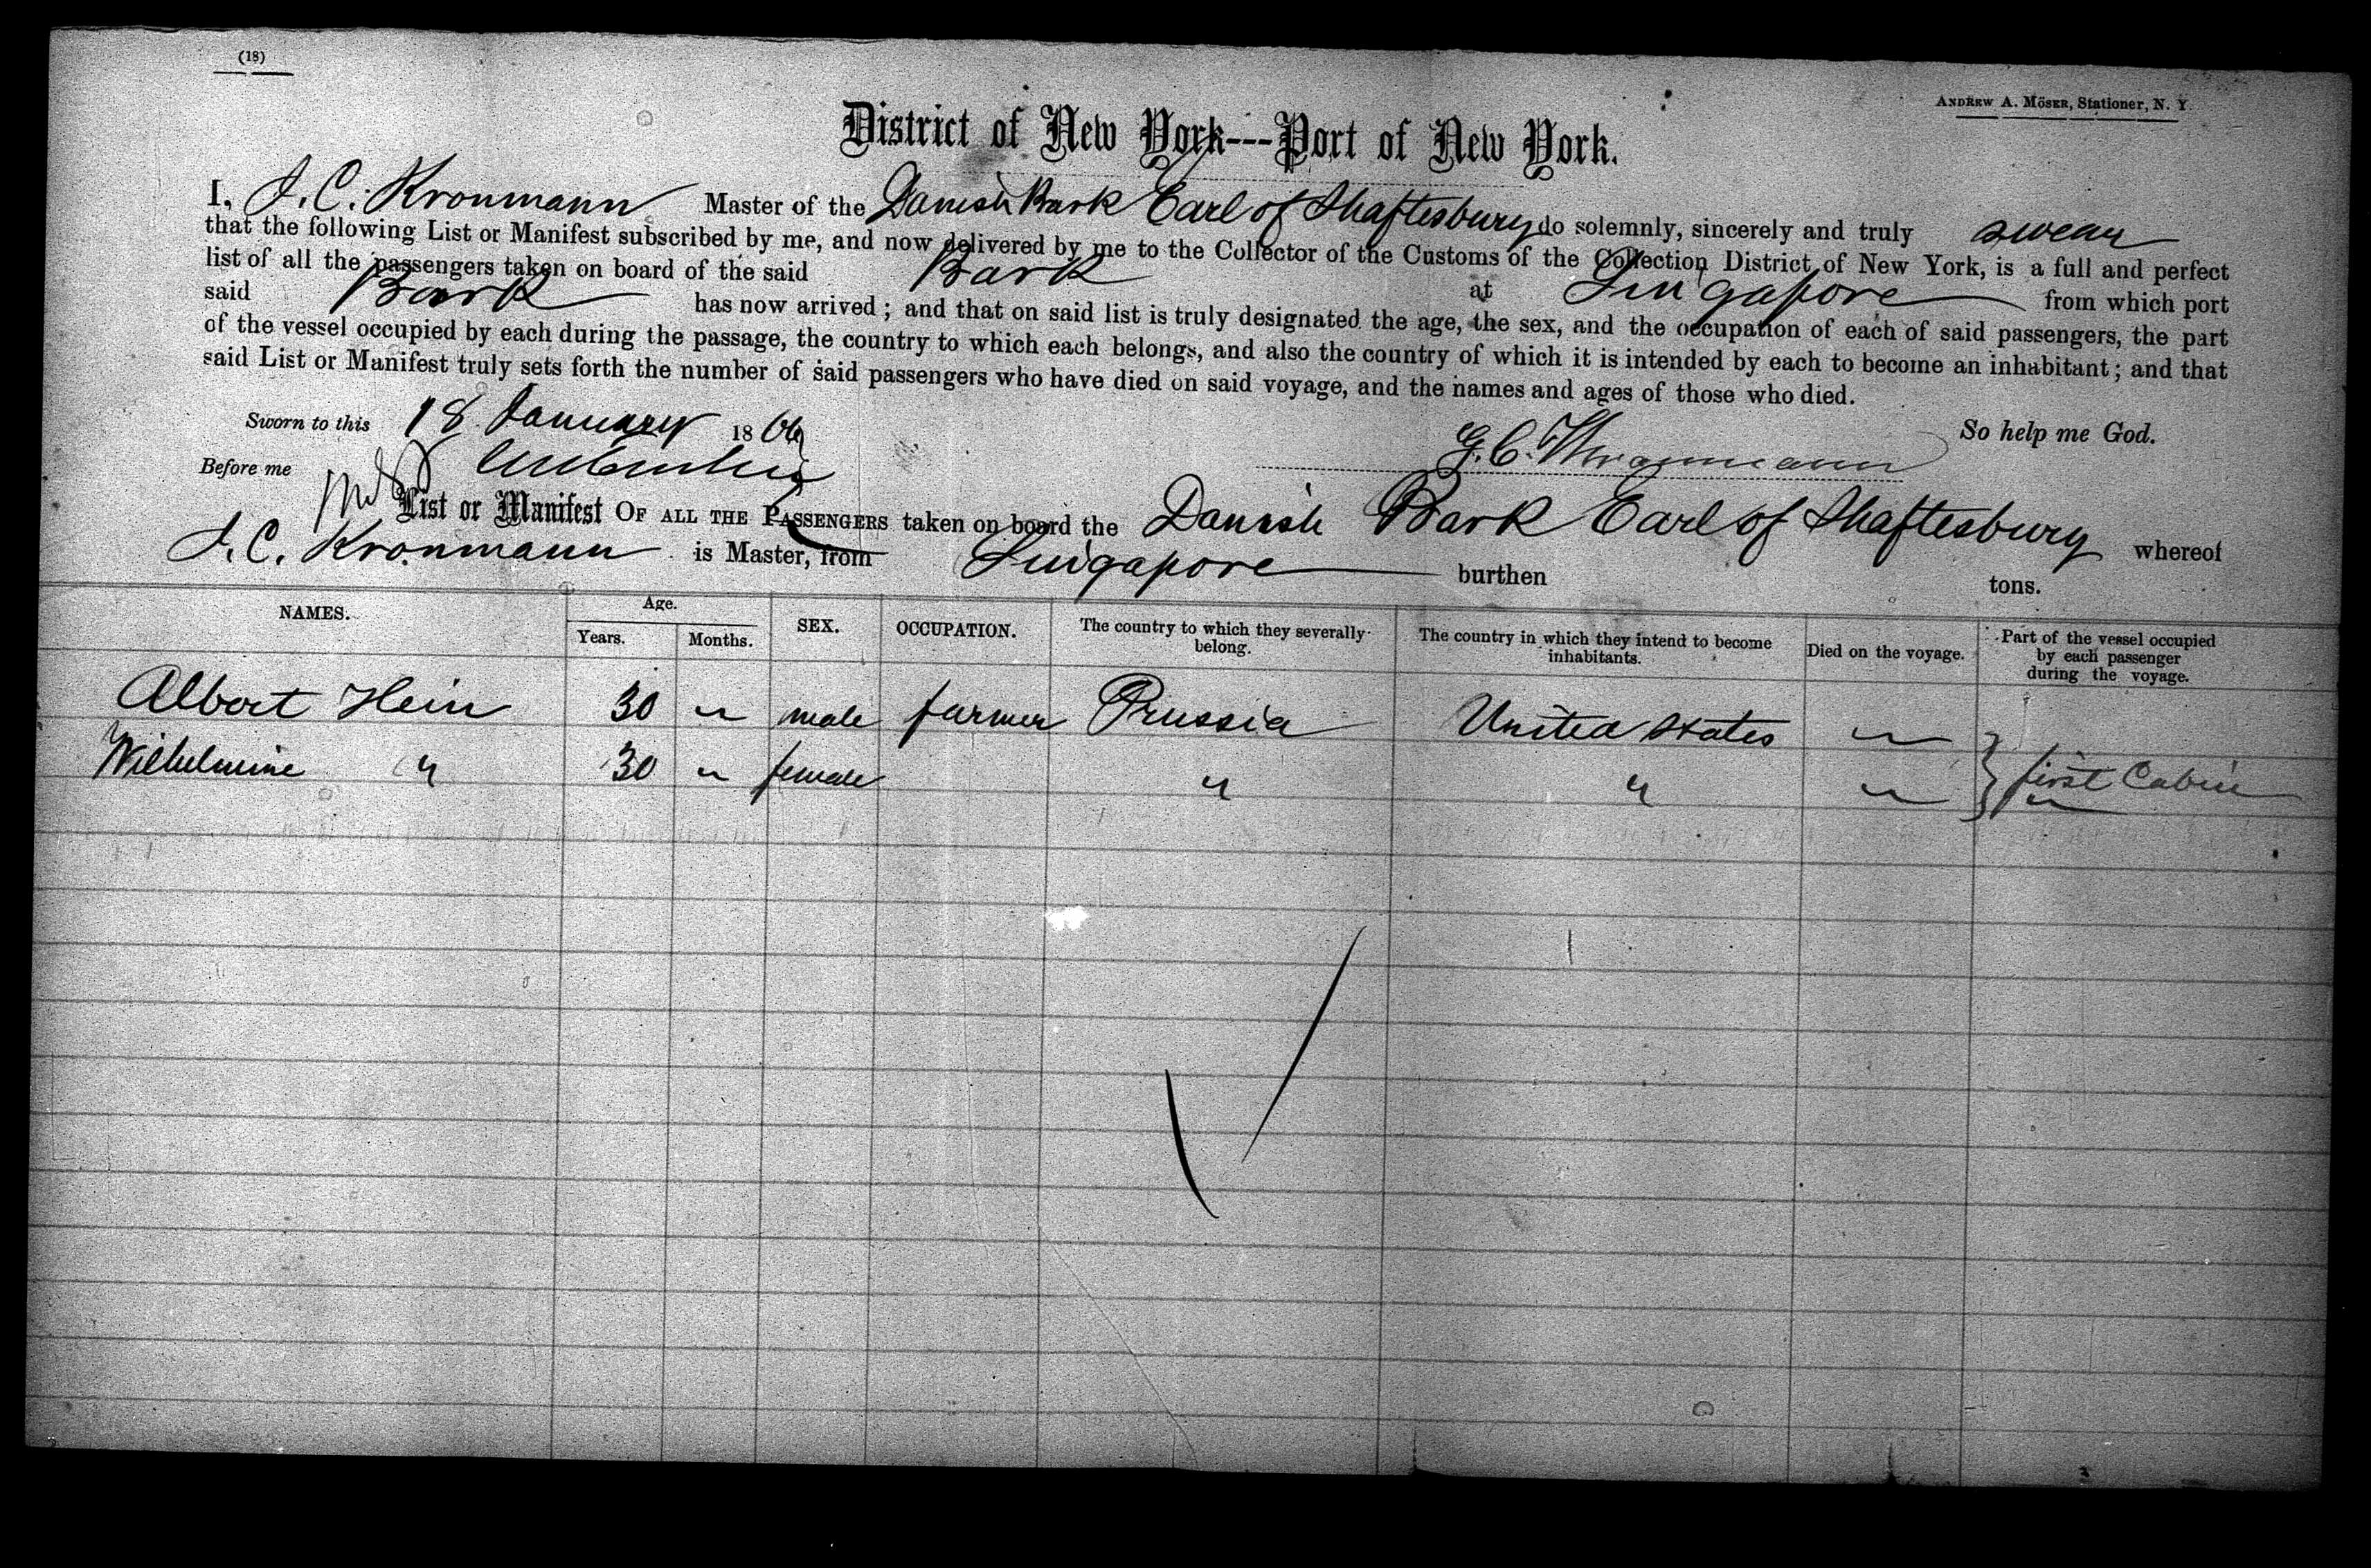 (18)
ANDREW A. MÖSER, Stationer, N. Y.
District of New York---Port of New York.
I, J. C. Kronmann Master of the Danish Bark Earl of Shaftesbury do solemnly, sincerely and truly swear
that the following List or Manifest subscribed by me, and now delivered by me to the Collector of the Customs of the Collection District of New York, is a full and perfect
list of all the passengers taken on board of the said Bark at Singapore from which port
said Bark has now arrived; and that on said list is truly designated the age, the sex, and the occupation of each of said passengers, the part
of the vessel occupied by each during the passage, the country to which each belongs, and also the country of which it is intended by each to become an inhabitant; and that
said List or Manifest truly sets forth the number of said passengers who have died on said voyage, and the names and ages of those who died.
Sworn to this 18 January 1866 So help me God.
Before me
List or Manifest OF ALL THE PASSENGERS taken on board the Danish Bark Earl of Shaftesbury whereof
J. C. Kronmann is Master, from Singapore burthen tons.
NAMES. Age. Years. Months. SEX. OCCUPATION. The country to which they severally belong. The country in which they intend to become inhabitants. Died on the voyage. Part of the vessel occupied by each passenger during the voyage.
Albert Hein 30 " male farmer Prussia United States
Wilhelmine " 30 " female " " first Cabin